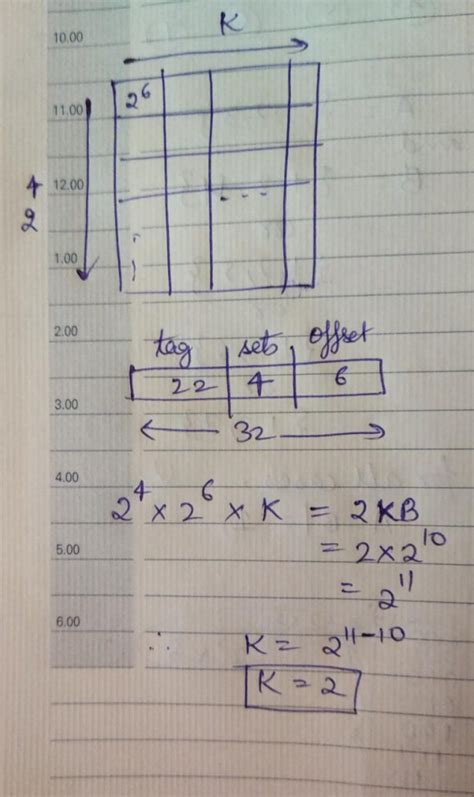 K
10.00
2^6
11.00
2^4
12.00
....
1.00
2.00
tag sets offset
22 4 6
3.00
32
4.00
2^4 × 2^6 × K = 2KB
5.00
= 2 × 2^10
= 2^11
6.00
∴ K = 2^11-10
K = 2